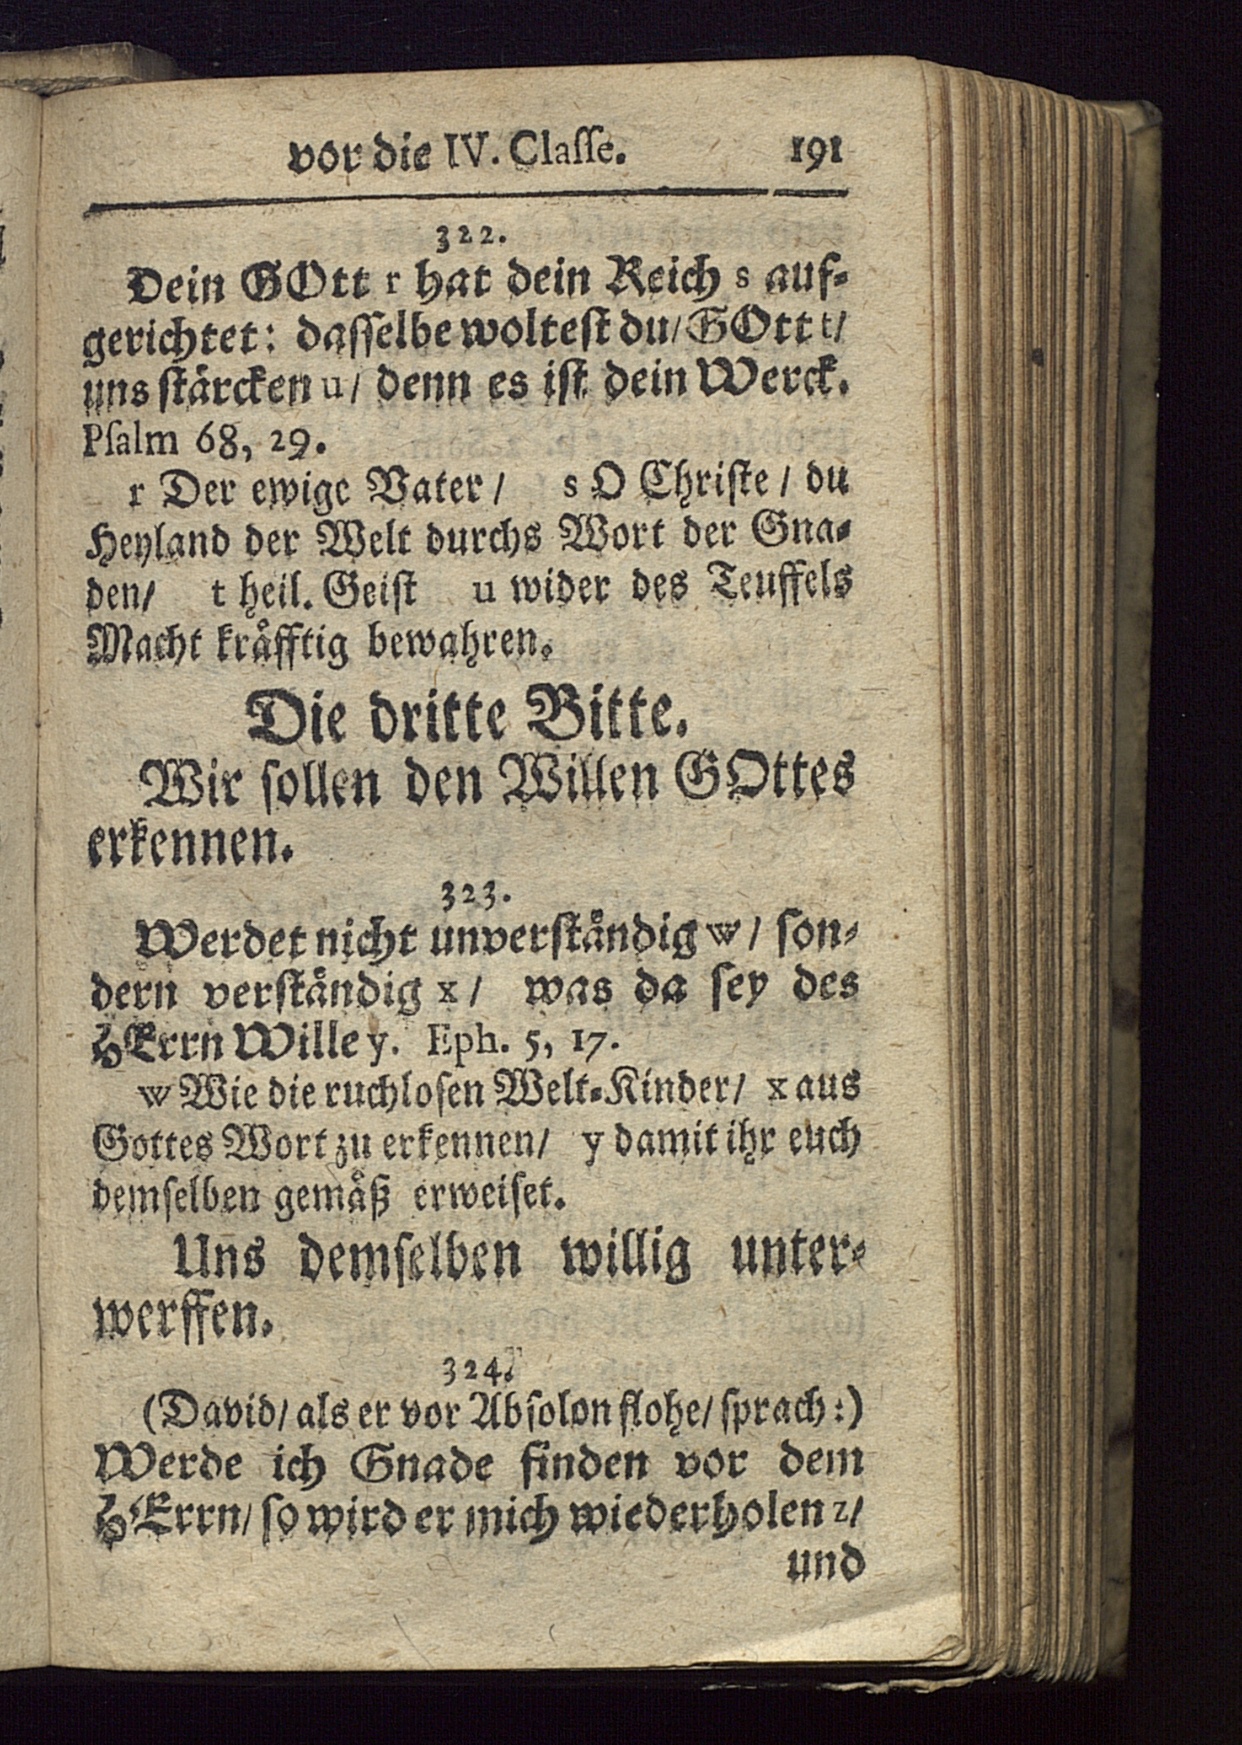 vor die IV. Claſſe. 191
322.
Dein GOtt r hat dein Reich s auf⸗
gerichtet: daſſelbe wolteſt du/ GOtt t/
uns ſtärcken u/ denn es iſt dein Werck.
Pſalm 68, 29.
r Der ewige Vater/ s O Chriſte/ du
Heyland der Welt durchs Wort der Gna⸗
den/ t heil. Geiſt u wider des Teuffels
Macht kräfftig bewahren.
Die dritte Bitte.
Wir ſollen den Willen GOttes
erkennen.
323.
Werdet nicht unverſtändig w/ ſon⸗
dern verſtändig x/ was da ſey des
HErrn Wille y. Eph. 5, 17.
w Wie die ruchloſen Welt⸗Kinder/ x aus
Gottes Wort zu erkennen/ y damit ihr euch
demſelben gemäß erweiſet.
Uns demſelben willig unter⸗
werffen.
324.
(David/ als er vor Abſolon flohe/ ſprach:)
Werde ich Gnade finden vor dem
HErrn/ ſo wird er mich wiederholen z/
und